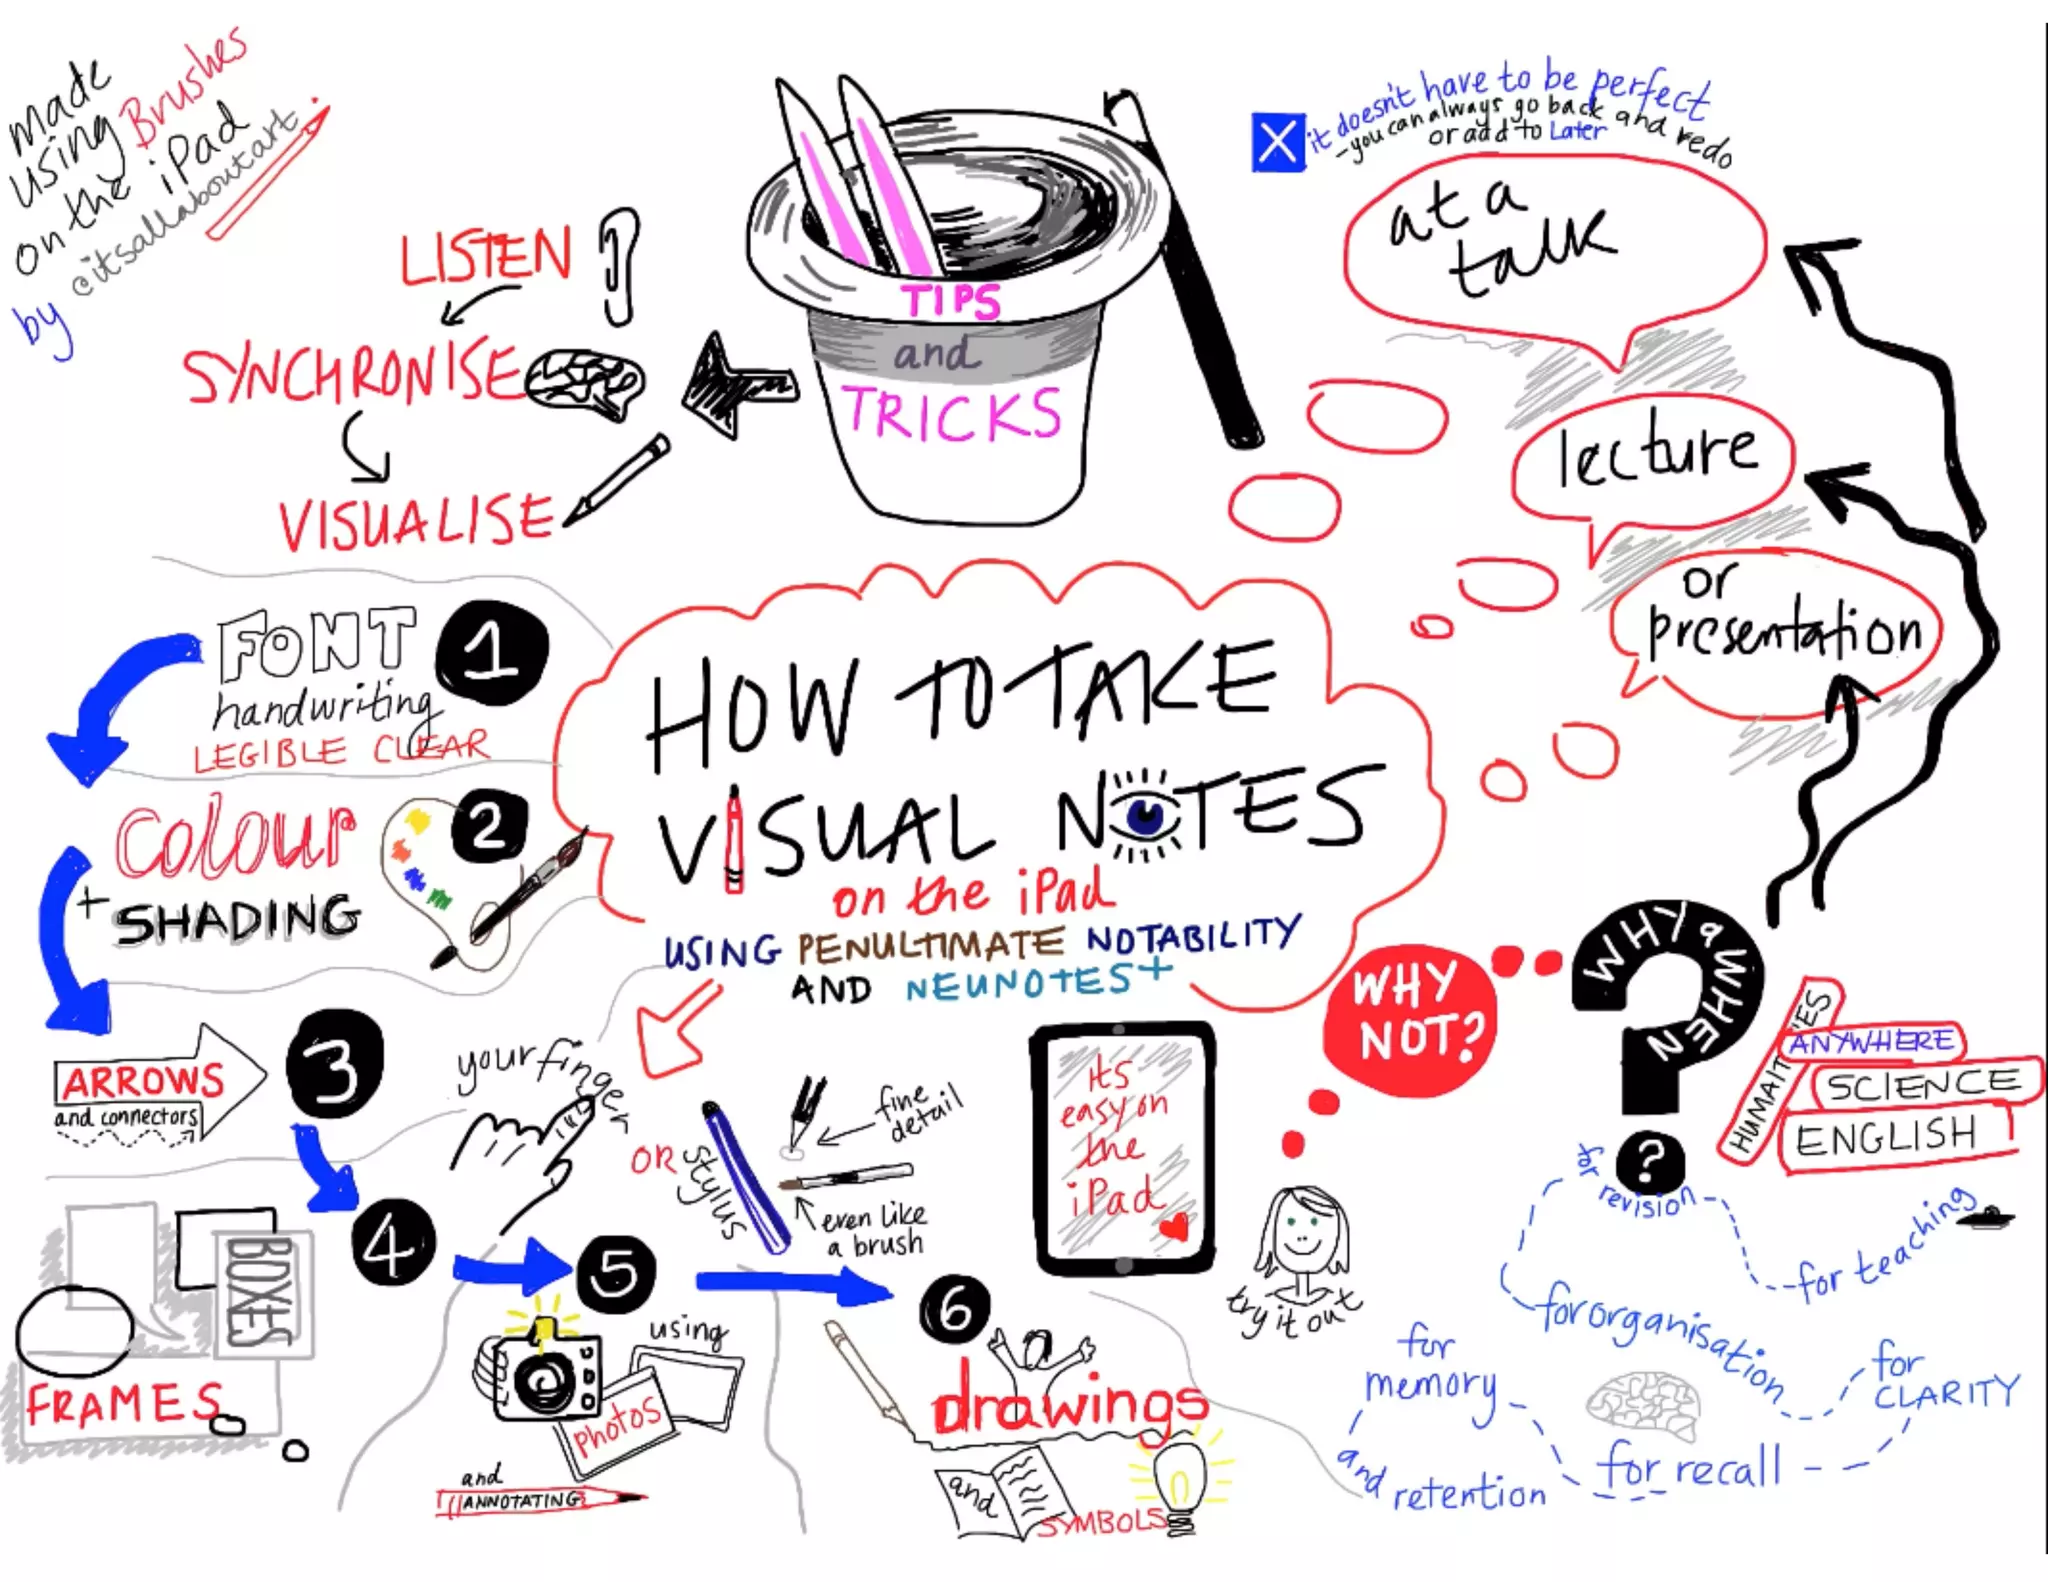 made
using Brushes
on the iPad
by @itsallaboutart
LISTEN
SYNCHRONISE
VISUALISE
TIPS
and
TRICKS
X it doesn't have to be perfect
- you can always go back and redo
or add to Later
at a
talk
lecture
or
presentation
HOW TO TAKE
VISUAL NOTES
on the iPad
USING PENULTIMATE NOTABILITY
AND NEUNOTES+
FONT 1
handwriting
LEGIBLE CLEAR
colour 2
+ SHADING
ARROWS 3
and connectors
4
BOXES
FRAMES
5
using
photos
and
ANNOTATING
6
drawings
and
SYMBOLS
your finger
OR
stylus
fine
detail
even like
a brush
its
easy on
the
iPad
try it out
WHY
NOT?
WHY & WHEN
?
HUMAITIES
ANYWHERE
SCIENCE
ENGLISH
for revision
for teaching
for organisation
for
CLARITY
for recall
for
memory
and retention